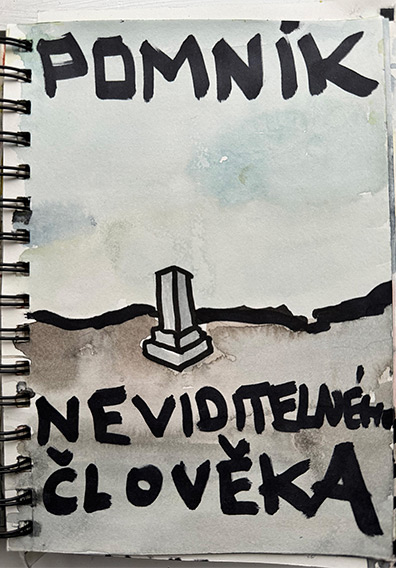 POMNÍK
NEVIDITELNÉHO
ČLOVĚKA